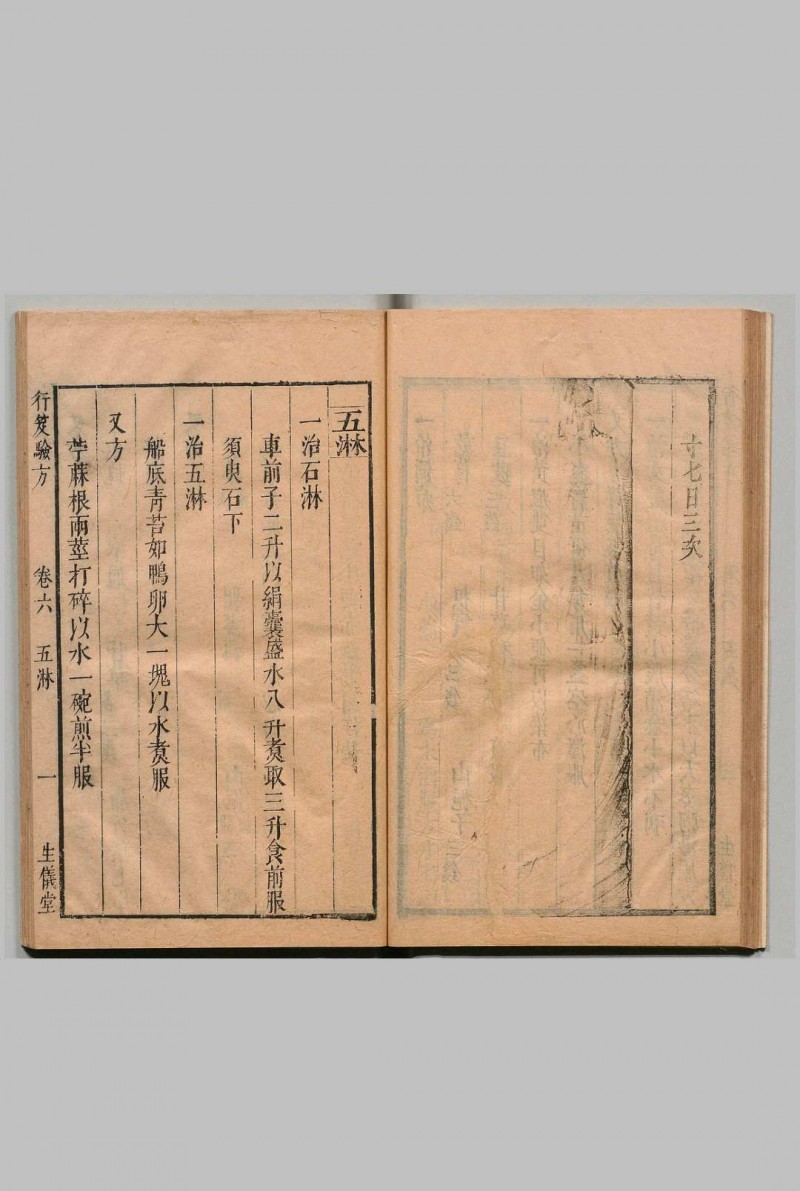 寸七日三次
五淋
一治石淋
車前子二升以絹囊盛水八升煑取三升食前服
須臾石下
一治五淋
船底青苔如鴨卵大一塊以水煑服
又方
苧蔴根兩莖打碎以水一碗煎半服
行笈驗方 卷六 五淋 一 生儀堂